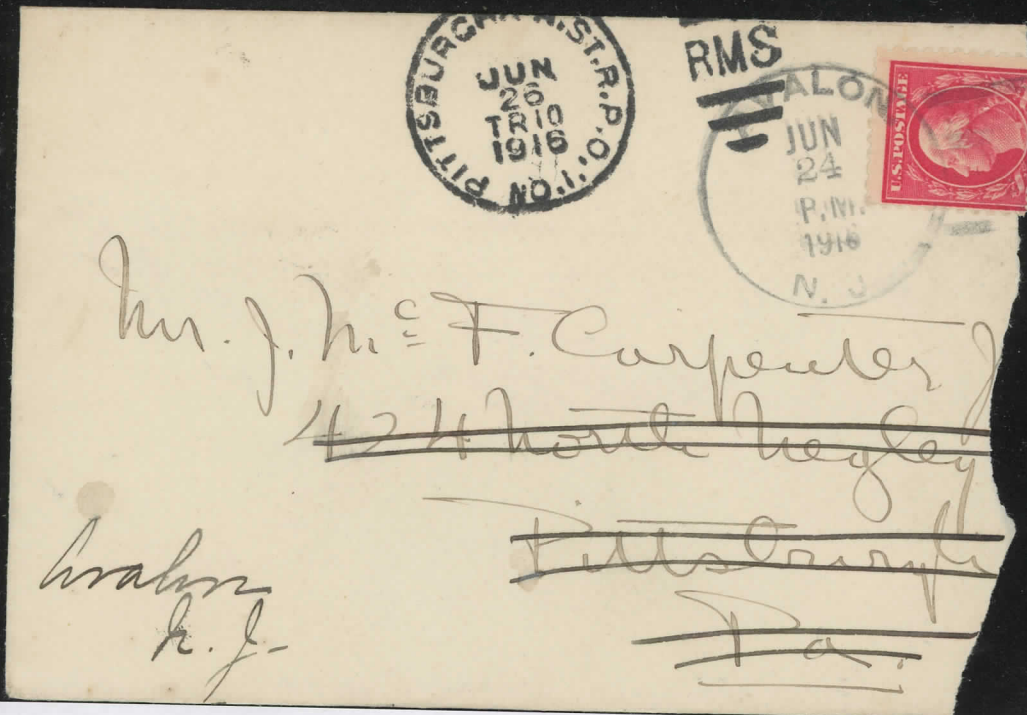 PITTSBURGH & N.ST.R.P.O.
JUN
26
TR10
1916
NO.1.
RMS
AVALON
JUN
24
P.M.
1916
N. J
U.S. POSTAGE
Mr. J. Mc F. Carpenter J
424 North Negley
Pittsburgh
Pa.
Avalon
N. J.